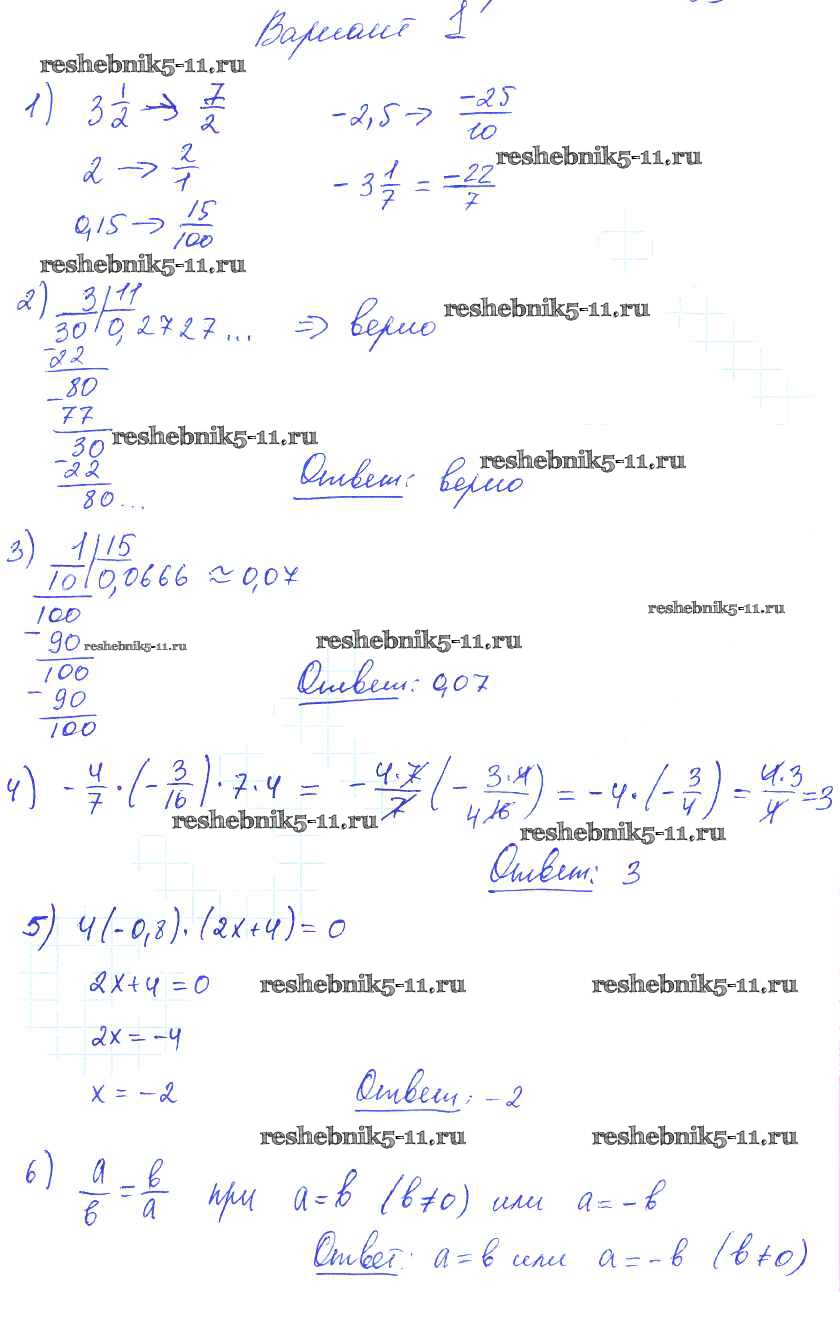 Вариант 1
reshebnik5-11.ru
1) 3 1/2 → 7/2    -2,5 → -25/10
reshebnik5-11.ru
2 → 2/1    -3 1/7 = -22/7
0,15 → 15/100
reshebnik5-11.ru
2) 3 | 11
reshebnik5-11.ru
30 | 0,2727... ⇒ верно
-22
-80
77
reshebnik5-11.ru
-30
reshebnik5-11.ru
22    Ответ: верно
80...
3) 1 | 15
10 | 0,0666 ≈ 0,07
100    reshebnik5-11.ru
-90    reshebnik5-11.ru    reshebnik5-11.ru
100    Ответ: 0,07
-90
100
4) -4/7 · (-3/16) · 7 · 4 = -4·7/7 (-3·4/4 16) = -4 · (-3/4) = 4·3/4 = 3
reshebnik5-11.ru    reshebnik5-11.ru
Ответ: 3
5) 4(-0,8)·(2x+4) = 0
2x+4 = 0    reshebnik5-11.ru    reshebnik5-11.ru
2x = -4
x = -2    Ответ: -2
reshebnik5-11.ru    reshebnik5-11.ru
6) a/в = в/a при a = в (в≠0) или a = -в
Ответ: a = в или a = -в (в≠0)